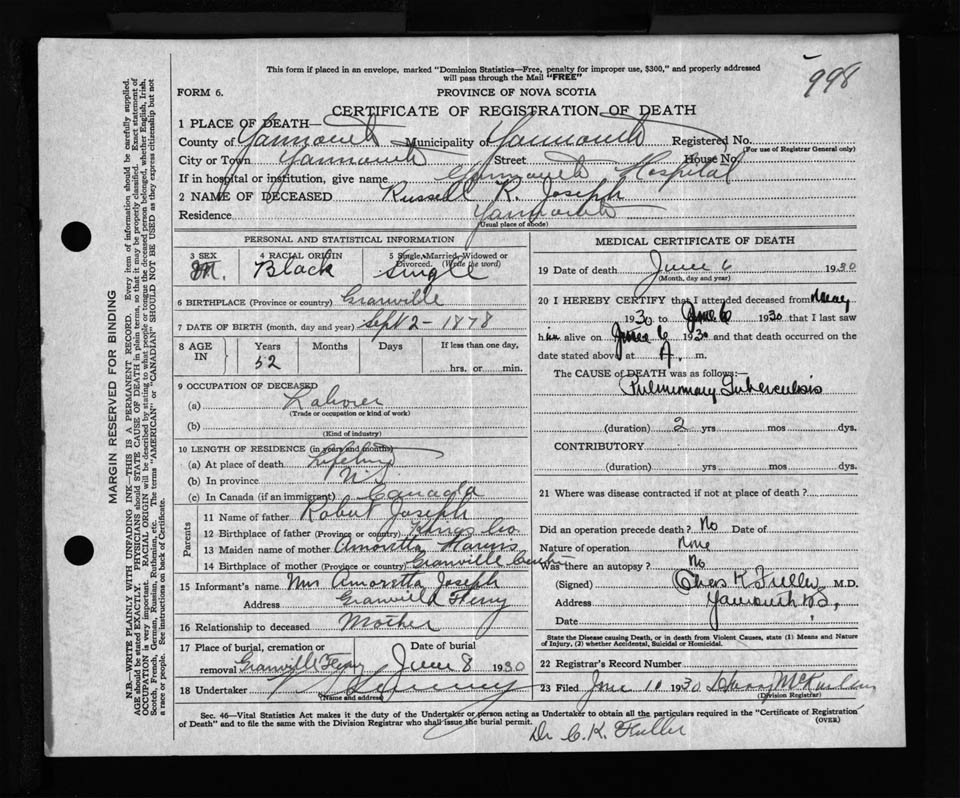 998
This form if placed in an envelope, marked "Dominion Statistics—Free, penalty for improper use, $300," and properly addressed
will pass through the Mail "FREE"
FORM 6. PROVINCE OF NOVA SCOTIA
CERTIFICATE OF REGISTRATION OF DEATH
1 PLACE OF DEATH—
County of Yarmouth Municipality of Yarmouth Registered No.
(For use of Registrar General only)
City or Town Yarmouth Street House No.
If in hospital or institution, give name Yarmouth Hospital
2 NAME OF DECEASED Russell R. Joseph
Residence Yarmouth
(Usual place of abode)
PERSONAL AND STATISTICAL INFORMATION
3 SEX 4 RACIAL ORIGIN 5 Single, Married, Widowed or
Divorced. (Write the word)
M. Black Single
6 BIRTHPLACE (Province or country) Granville
7 DATE OF BIRTH (month, day and year) Sept 2 - 1878
8 AGE IN Years Months Days If less than one day,
52 hrs. or min.
9 OCCUPATION OF DECEASED
(a) Laborer
(Trade or occupation or kind of work)
(b)
(Kind of industry)
10 LENGTH OF RESIDENCE (in years and months)
(a) At place of death Lifetime
(b) In province N.S
(c) In Canada (if an immigrant) Canada
Parents
11 Name of father Robert Joseph
12 Birthplace of father (Province or country) Kings Co
13 Maiden name of mother Amoretta
14 Birthplace of mother (Province or country) Granville
15 Informant's name Mrs Amoretta Joseph
Address Granville Ferry
16 Relationship to deceased Mother
17 Place of burial, cremation or Date of burial
removal Granville Ferry June 8 1930
18 Undertaker
(Name and address)
MEDICAL CERTIFICATE OF DEATH
19 Date of death June 6 1930
(Month, day and year)
20 I HEREBY CERTIFY that I attended deceased from May
1930 to June 6 1930 that I last saw
him alive on June 6 1930 and that death occurred on the
date stated above at A. m.
The CAUSE of DEATH was as follows:—
Pulmonary Tuberculosis
(duration) 2 yrs mos dys.
CONTRIBUTORY
(duration) yrs mos dys.
21 Where was disease contracted if not at place of death?
Did an operation precede death? No Date of
Nature of operation None
Was there an autopsy? No
(Signed) Chas K Fuller, M.D.
Address Yarmouth N.S,
Date
State the Disease causing Death, or in death from Violent Causes, state (1) Means and Nature
of Injury, (2) whether Accidental, Suicidal or Homicidal.
22 Registrar's Record Number
23 Filed June 10 1930
(Division Registrar)
Sec. 46—Vital Statistics Act makes it the duty of the Undertaker or person acting as Undertaker to obtain all the particulars required in the "Certificate of Registration
of Death" and to file the same with the Division Registrar who shall issue the burial permit. (OVER)
Dr C.K. Fuller
MARGIN RESERVED FOR BINDING
N.B.—WRITE PLAINLY WITH UNFADING INK—THIS IS A PERMANENT RECORD. Every item of information should be carefully supplied.
AGE should be stated EXACTLY. PHYSICIANS should STATE CAUSE OF DEATH in plain terms, so that it may be properly classified. Exact statement of
OCCUPATION is very important. RACIAL ORIGIN will be described by stating to what people or tongue the deceased person belonged, whether English, Irish,
Scotch, French, German, Russian, Ruthenian, etc. The terms "AMERICAN" or "CANADIAN" SHOULD NOT BE USED as they express citizenship but not
a race or people. See instructions on back of Certificate.